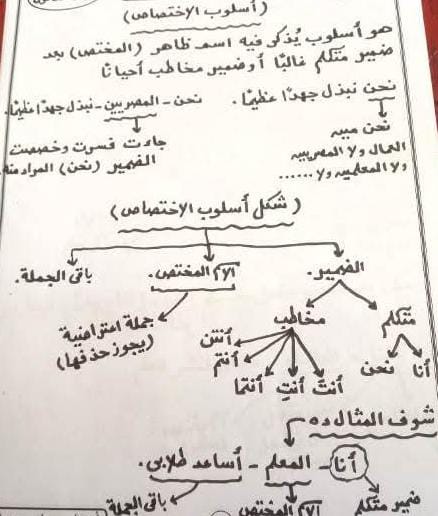 (أسلوب الاختصاص)
هو أسلوب يُذكر فيه اسم ظاهر (المختص) بعد
ضمير متكلم غالبًا أو ضمير مخاطب أحيانًا
نحن نبذل جهدًا عظيمًا.
نحن - المصريين - نبذل جهدًا عظيمًا.
نحن مين
العمال ولا المصريين
ولا المعلمين ولا......
جاءت فسرت وخصصت
الضمير (نحن) المراد منه
(شكل أسلوب الاختصاص)
الضمير.
الاسم المختص.
باقي الجملة.
متكلم
مخاطب
أنا
نحن
أنتَ
أنتِ
أنتما
أنتم
أنتن
جملة اعتراضية
(يجوز حذفها)
شوف المثال ده
أنا - المعلم - أساعد طلابي.
ضمير متكلم
الاسم المختص
باقي الجملة